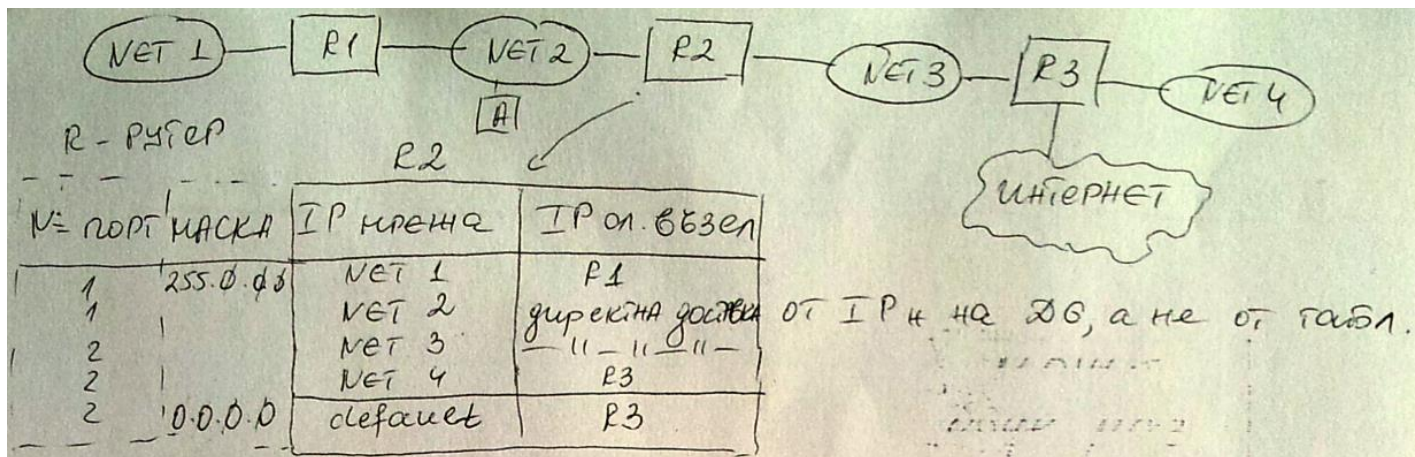 NET 1 R1 NET 2 R2 NET 3 R3 NET 4
A
R - РУТЕР
R2
ИНТЕРНЕТ
№ ПОРТ МАСКА IP мрежа IP сл. възел
1 255.0.0.0 NET 1 R1
1 NET 2 директна доставка от IP н на DG, а не от табл.
2 NET 3 — " — " — " —
2 NET 4 R3
2 0.0.0.0 default R3